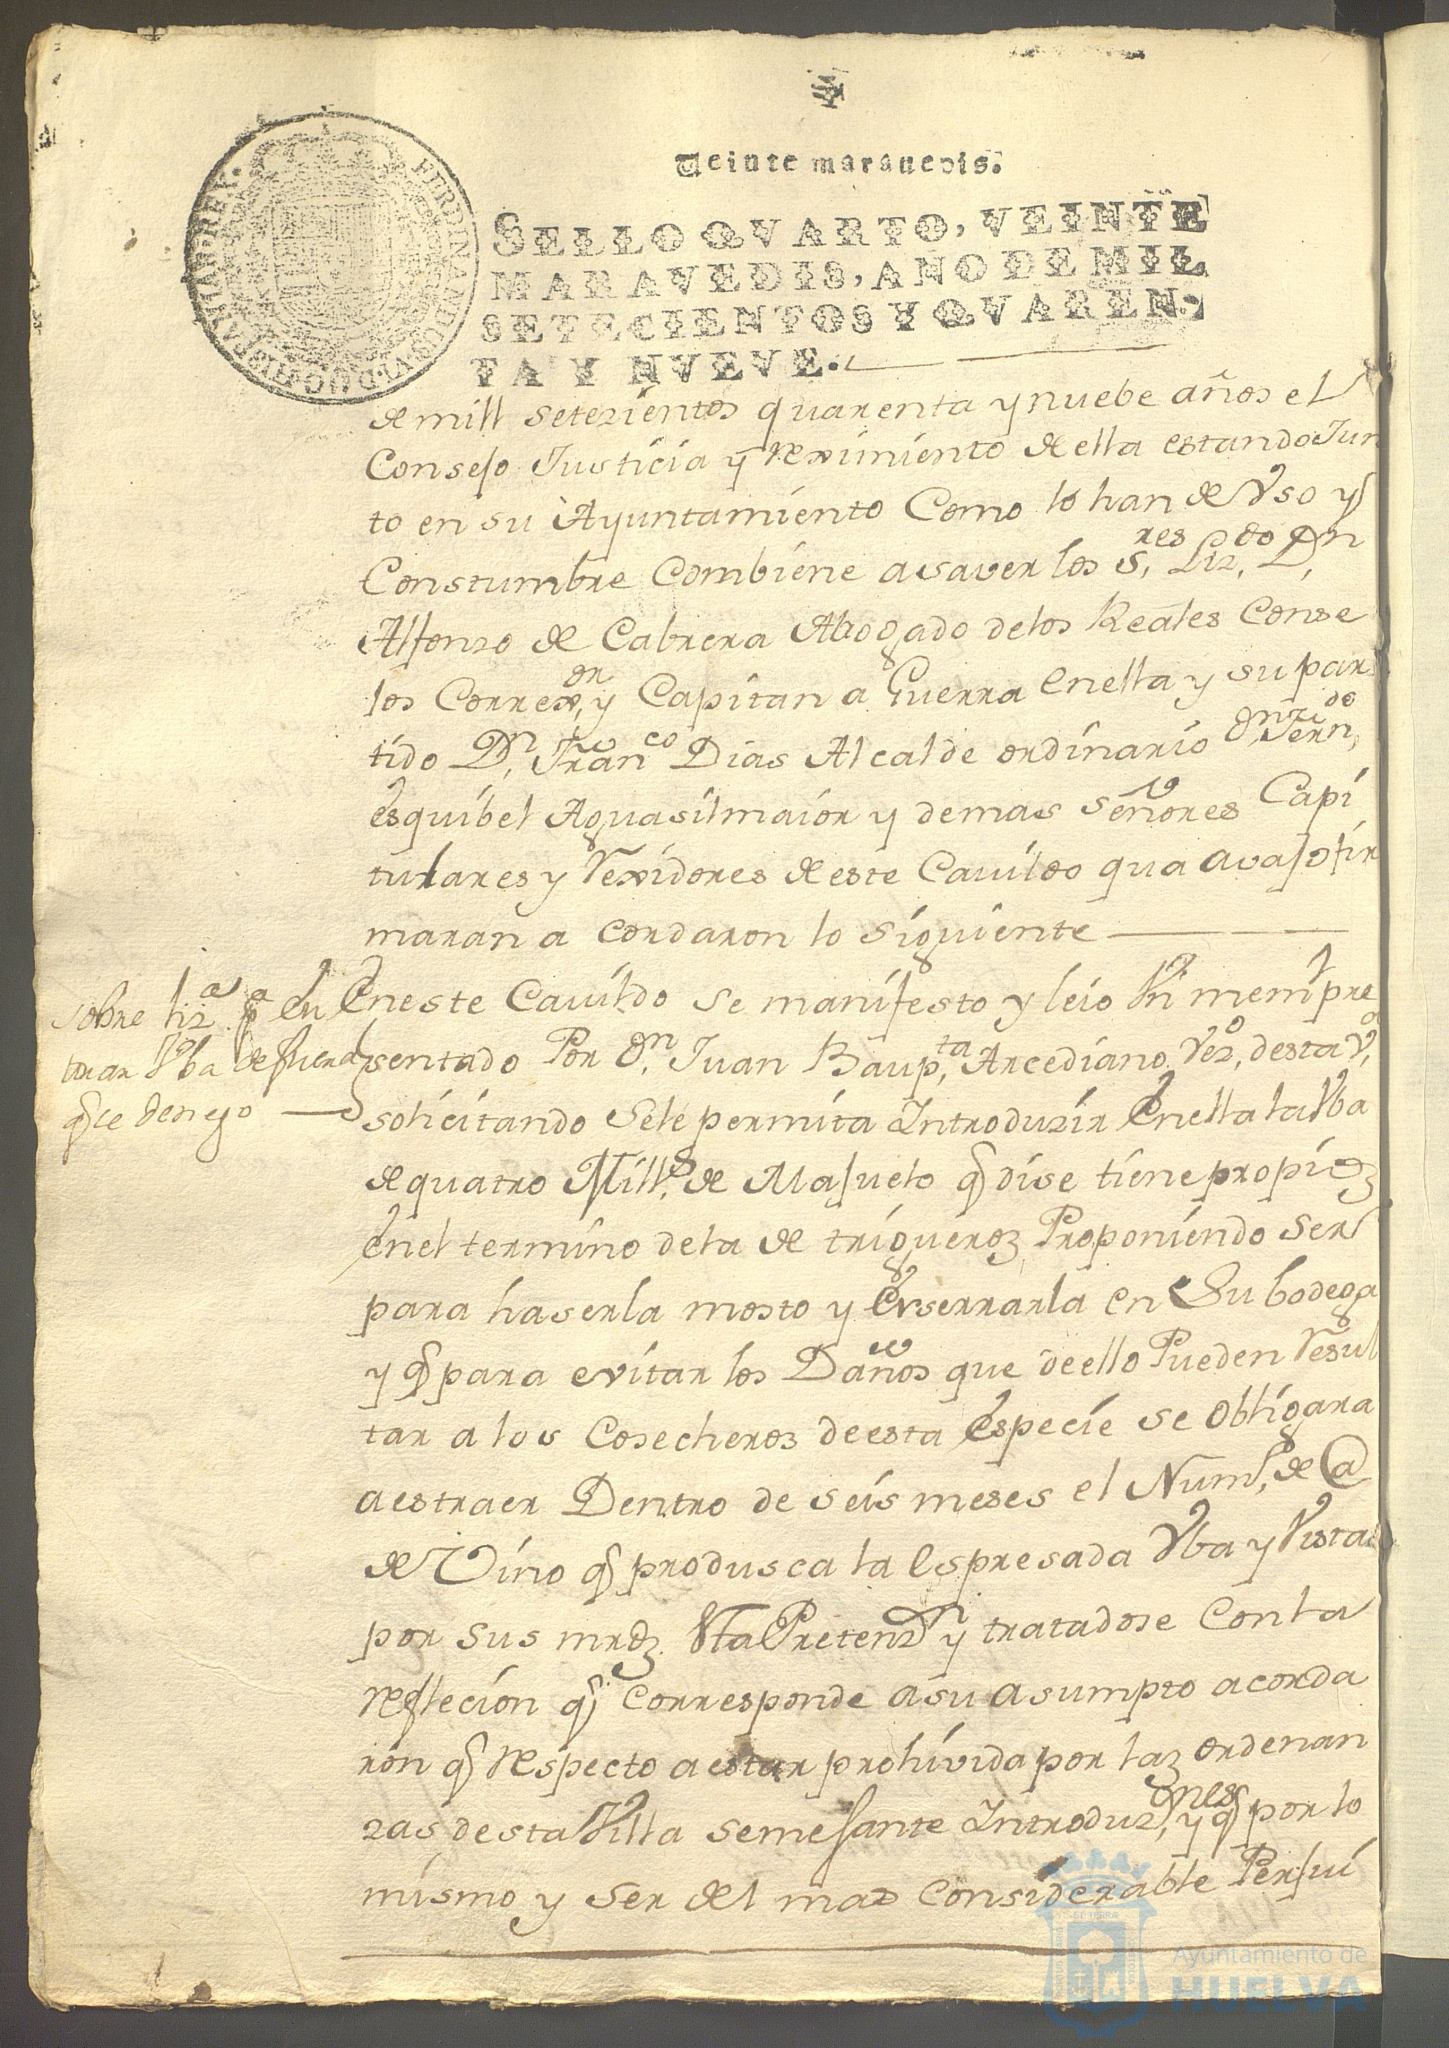 Veinte maravedis.
SELLO QVARTO, VEINTE
MARAVEDIS, AÑO DE MIL
SETECIENTOS Y QVAREN-
TA Y NVEVE.
de mill setezientos quarenta y nuebe años el
Consejo Justicia y reximiento de ella estando Jun
to en su Ayuntamiento Como lo han de Vso y
Constumbre Combiene a saver los S.res Liz.do D.n
Alfonso de Cabrera Abogado de los Reales Conse
los Correx.or y Capitan a Guerra en ella y su par
tido D.n Fran.co Dias Alcalde ordinario D.n Fern.do
esquibel Aguasil maior y demas señores Capi
tulares y Rexidores de este Cavildo qua avajo fir
maran a cordaron lo siguiente
sobre liz.a p.a en
trar Vba de fuera
q se denego
En este Cavildo se manifesto y leio Vn mem.l pre
sentado Por D.n Juan Baup.ta Arcediano Vez.o desta V.a
solicitando Se le permita Introduzir En ella la Vba
de quatro Mill.s de Majuelo q dise tiene propios
En el termino de la de trigueros Proponiendo Ser
para haserla mosto y Enserrarla en Su bodega
y q para evitar los Daños que de ello Pueden Resul
tar a los Cosecheros de esta Especie se obligara
a estraer Dentro de seis meses el Num.o de @
de Vino q produsca la Espresada Vba y Vista
por sus mrds. Vta Pretenz.n y tratadose Con la
reflecion q corresponde a su asumpto acorda
ron q respecto a estar prohivida por las ordenan
zas desta Villa semejante Introduz.ones y q por lo
mismo y ser del mas considerable Perjui
Ayuntamiento de
HUELVA